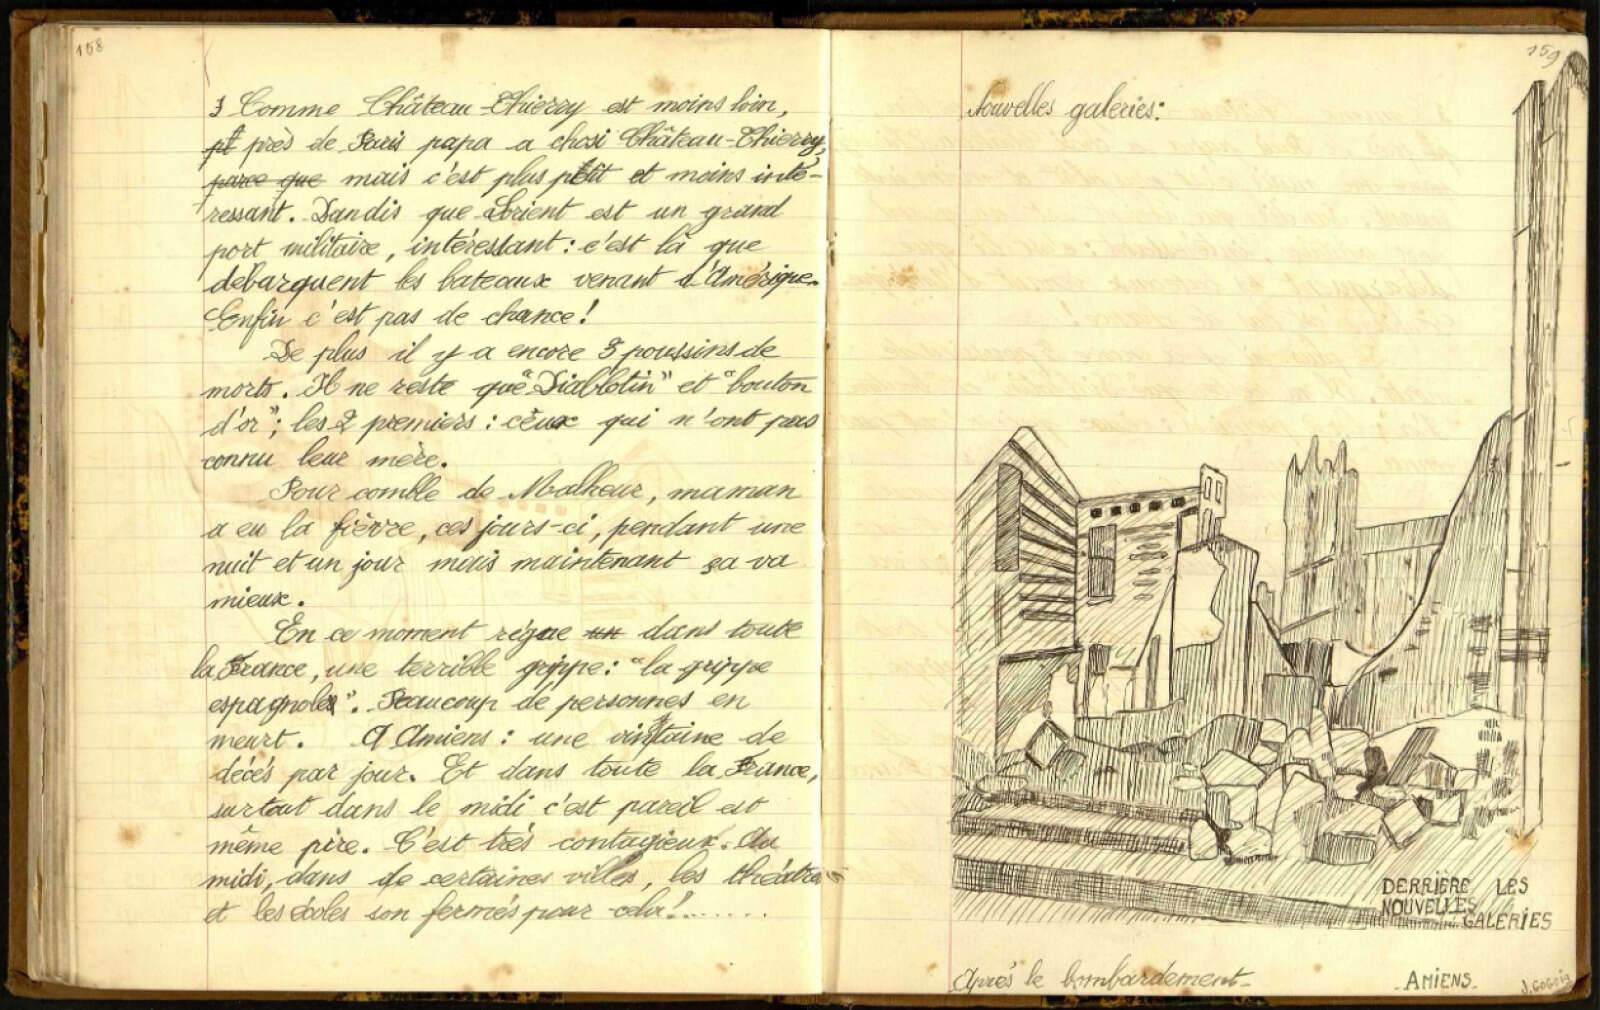 158
Comme Château-Thierry est moins loin,
pt près de Paris papa a chosi Château-Thierry,
parce que mais c'est plus petit et moins inté-
ressant. Tandis que Lorient est un grand
port militaire, intéressant : c'est là que
debarquent les bateaux venant d'Amérique.
Enfin c'est pas de chance !
De plus il y a encore 3 poussins de
morts. Il ne reste que "Diablotin" et "bouton
d'or" ; les 2 premiers : ceux qui n'ont pas
connu leur mère.
Pour comble de Malheur, maman
a eu la fièvre, ces jours-ci, pendant une
nuit et un jour mais maintenant ça va
mieux.
En ce moment règne un dans toute
la France, une terrible grippe : "la grippe
espagnole". Beaucoup de personnes en
meurt. A Amiens : une vintaine de
décés par jour. Et dans toute la France,
surtout dans le midi c'est pareil est
même pire. C'est très contagieux. Au
midi, dans de certaines villes, les théâtres
et les écoles son fermés pour cela !.......
159
Nouvelles galeries :
DERRIERE LES
NOUVELLES
GALERIES
Après le bombardement-
- AMIENS -